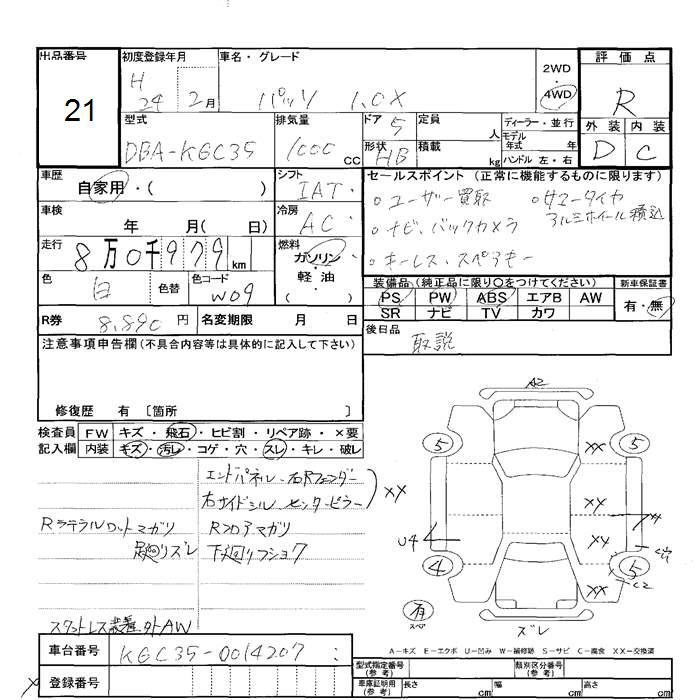 出品番号 初度登録年月 車名・グレード 2WD 4WD 評価点
21 H 24 2月 パッソ 1.0X R
型式 排気量 ドア 定員 人 ディーラー・並行 外装 内装
DBA-KGC35 1000 CC 5 モデル年式 年 D C
形状 HB 積載 kg ハンドル 左・右
車歴 シフト セールスポイント (正常に機能するものに限ります)
自家用・( ) IAT
○ユーザー買取 ○サマータイヤ
車検 年 月( 日) 冷房 AC アルミホイール積込
○ナビ、バックカメラ
走行 8万0千979km 燃料 ガソリン・軽油・( )
○キーレス、スペアキー
色 白 色替 色コード W09
装備品(純正品に限り○をつけてください) 新車保証書
PS PW ABS エアB AW 有・無
SR ナビ TV カワ
R券 8,890円 名変期限 月 日
後日品 取説
注意事項申告欄(不具合内容等は具体的に記入して下さい)
修復歴 有 [箇所 ]
検査員 FW キズ・飛石・ヒビ割・リペア跡・×要
記入欄 内装 キズ・汚レ・コゲ・穴・スレ・キレ・破レ
エンドパネル、右Rフェンダー
右サイドシル センターピラー XX
Rラテラルロットマガリ Rフロアマガリ
足廻リズレ 下廻リフショク
スタットレス装着、外AW
A2
5 5
XX
XX
XX
XX
U4
4 5
C2
有 スペア
ズレ
A-キズ E-エクボ U-凹み W-補修跡 S-サビ C-腐食 XX-交換済
車台番号 KGC35-0014207
登録番号
型式指定番号(参考) 類別区分番号(参考)
車庫証明用(参考) 長さ cm 幅 cm 高さ cm